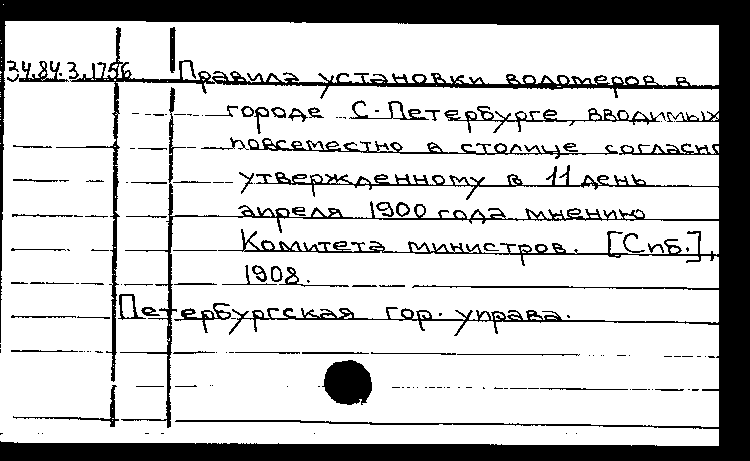 34.84.3.1756 Правила установки водомеров в
городе С-Петербурге, вводимых
повсеместно в столице согласно
утвержденному в 11 день
апреля 1900 года мнению
Комитета министров. [Спб.],
1908.
Петербургская гор. управа.